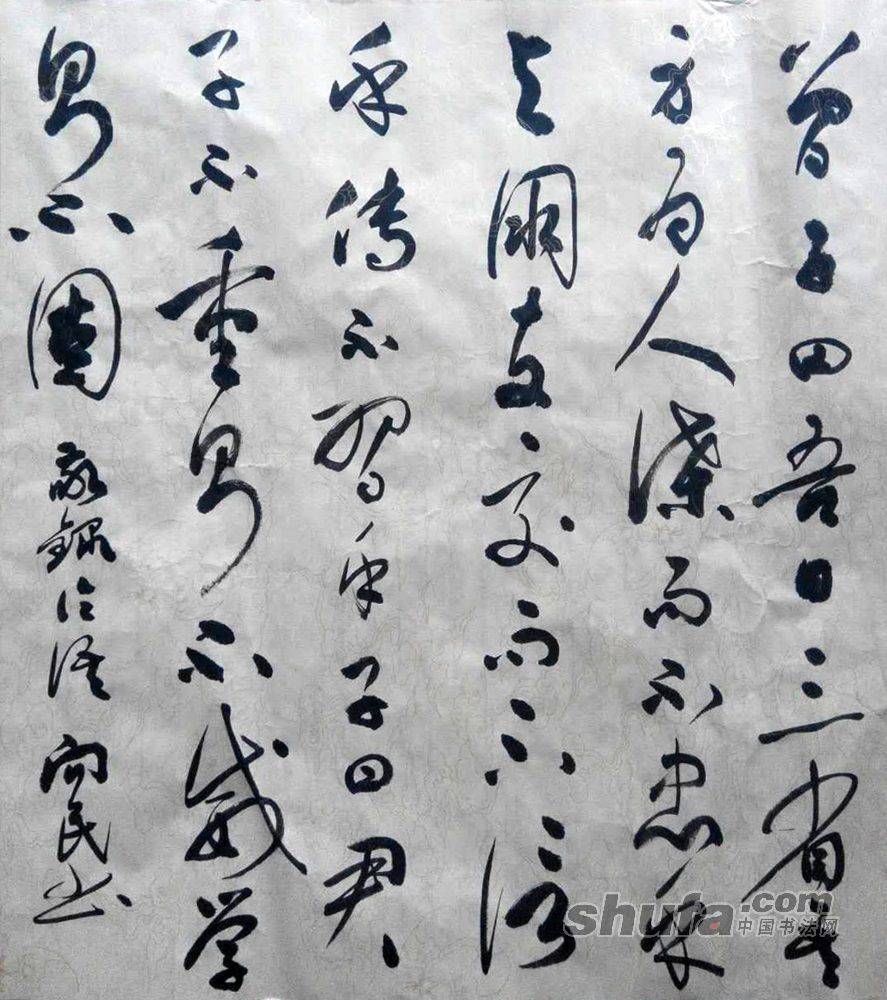 曾子曰吾日三省吾
身为人谋而不忠乎
与朋友交而不信
乎传不習乎子曰君
子不重则不威学
则不固 敬録论语 向民书
shufa.com
中国书法网